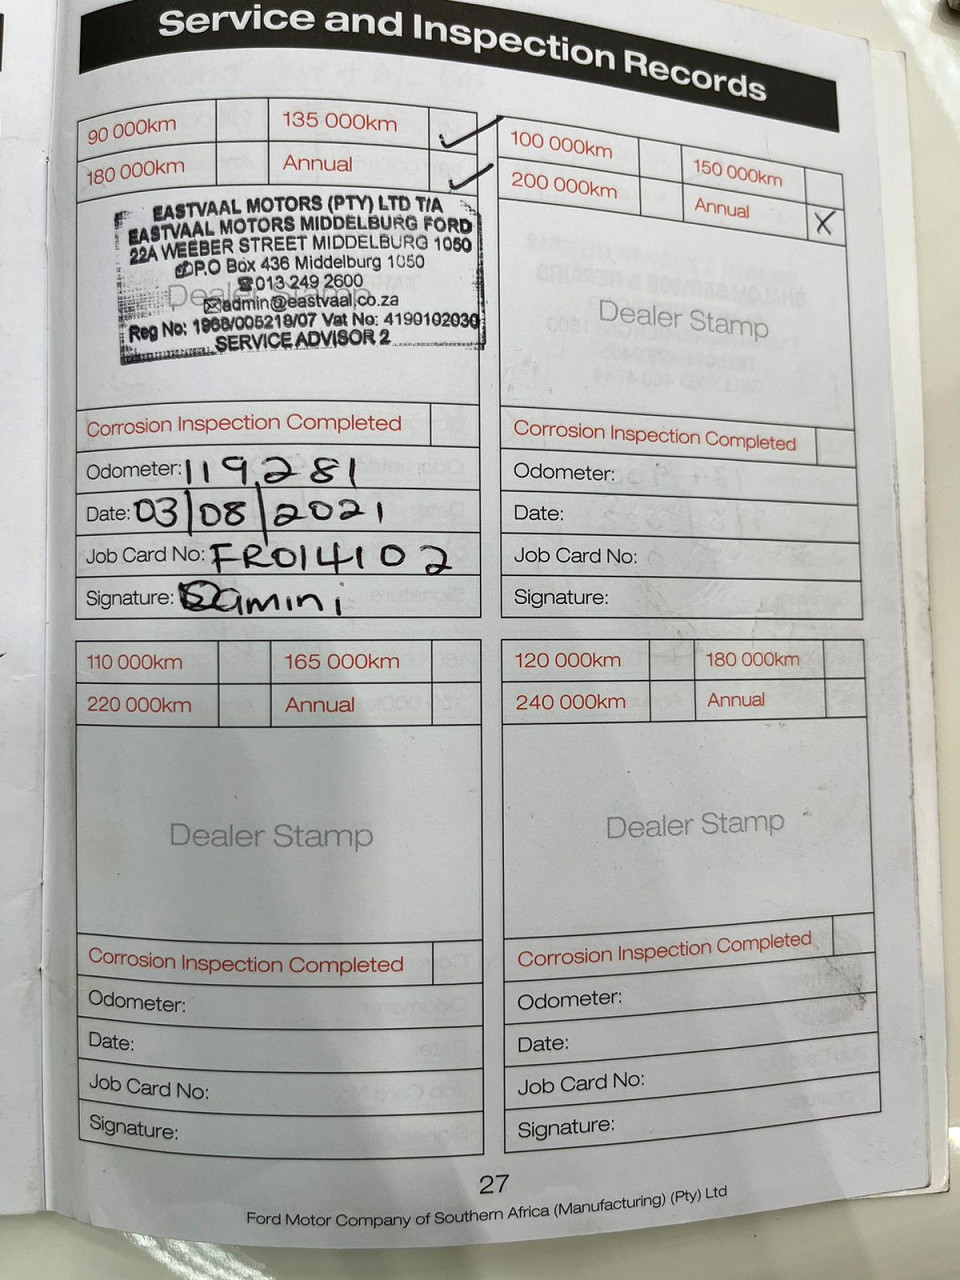 Service and Inspection Records
90 000km 135 000km ✓
180 000km Annual ✓
EASTVAAL MOTORS (PTY) LTD T/A
EASTVAAL MOTORS MIDDELBURG FORD
22A WEEBER STREET MIDDELBURG 1050
P.O Box 436 Middelburg 1050
☎013 249 2600
Dealer Stamp
✉admin@eastvaal.co.za
Reg No: 1968/005218/07 Vat No: 4190102030
SERVICE ADVISOR 2
Corrosion Inspection Completed
Odometer: 119281
Date: 03/08/2021
Job Card No: FR014102
Signature: Gamini
100 000km 150 000km
200 000km Annual X
Dealer Stamp
Corrosion Inspection Completed
Odometer:
Date:
Job Card No:
Signature:
110 000km 165 000km
220 000km Annual
Dealer Stamp
Corrosion Inspection Completed
Odometer:
Date:
Job Card No:
Signature:
120 000km 180 000km
240 000km Annual
Dealer Stamp
Corrosion Inspection Completed
Odometer:
Date:
Job Card No:
Signature:
27
Ford Motor Company of Southern Africa (Manufacturing) (Pty) Ltd